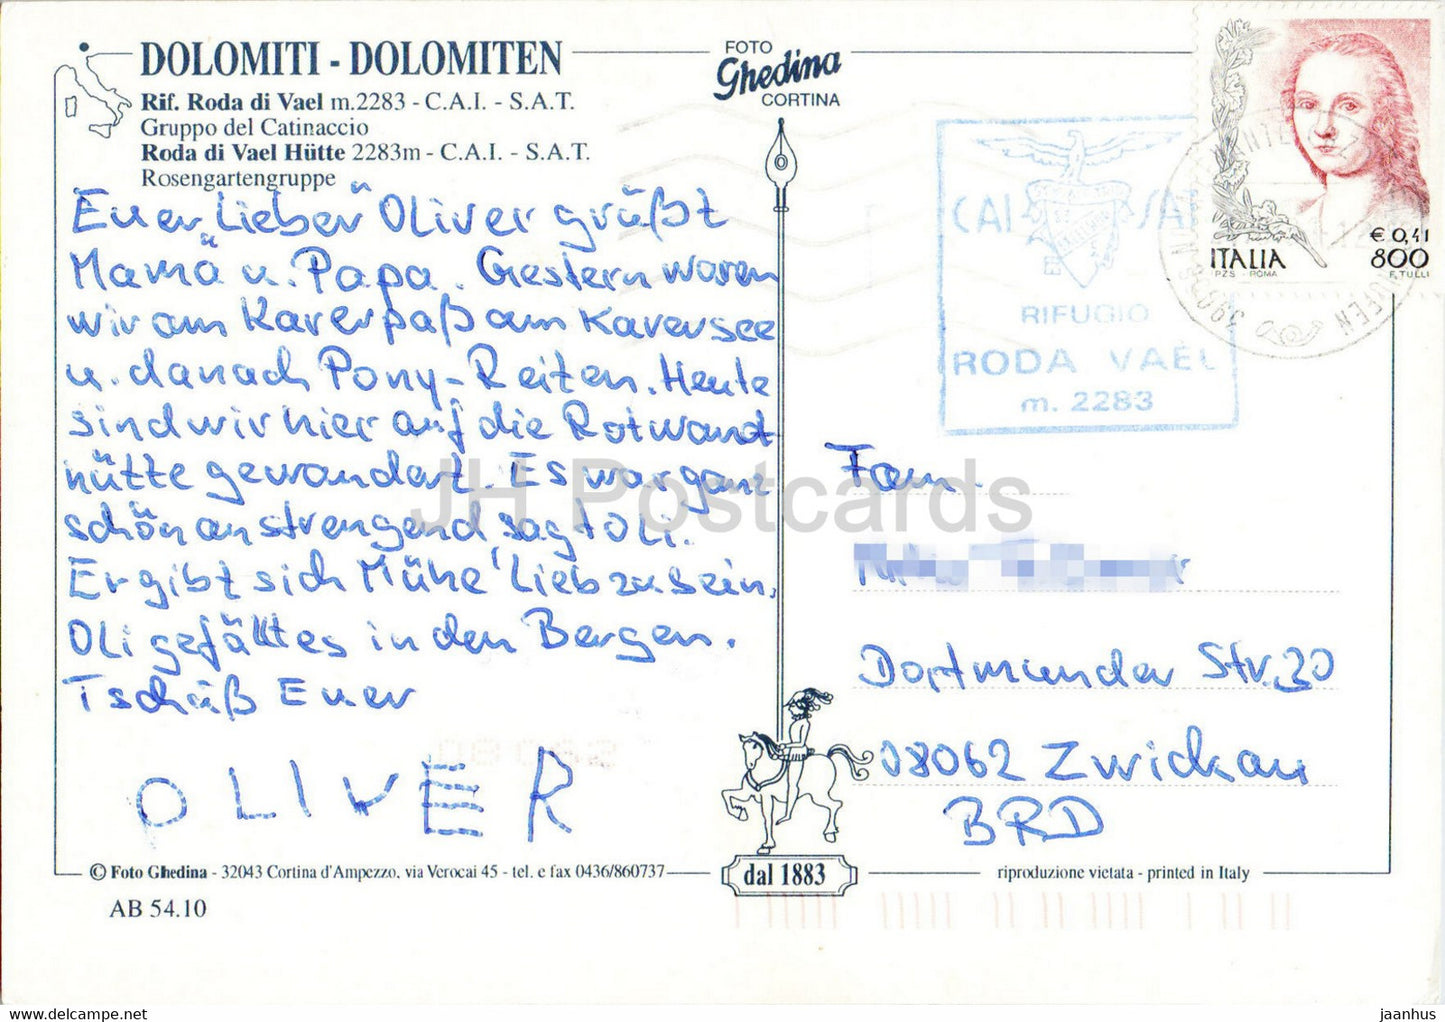 DOLOMITI - DOLOMITEN
Rif. Roda di Vael m.2283 - C.A.I. - S.A.T.
Gruppo del Catinaccio
Roda di Vael Hütte 2283m - C.A.I. - S.A.T.
Rosengartengruppe
Euer "Lieber" Oliver grüßt
Mama u. Papa. Gestern waren
wir am Karerpaß am Karersee
u. danach Pony-Reiten. Heute
sind wir hier auf die Rotwand
hütte gewandert. Es war ganz
schön anstrengend, sagt Oli.
Er gibt sich Mühe 'Lieb zu sein.
Oli gefällt es in den Bergen.
Tschüß Euer
OLIVER
FOTO
Ghedina
CORTINA
CAI SAT
RIFUGIO
RODA VAEL
m. 2283
ITALIA
€ 0,41
800
IPZS - ROMA
F. TULLI
Fam.
Dortmunder Str. 30
08062 Zwickau
BRD
© Foto Ghedina - 32043 Cortina d'Ampezzo, via Verocai 45 - tel. e fax 0436/860737
dal 1883
riproduzione vietata - printed in Italy
AB 54.10
JH Postcards
jh-ansichtskarten.com
jaanhus